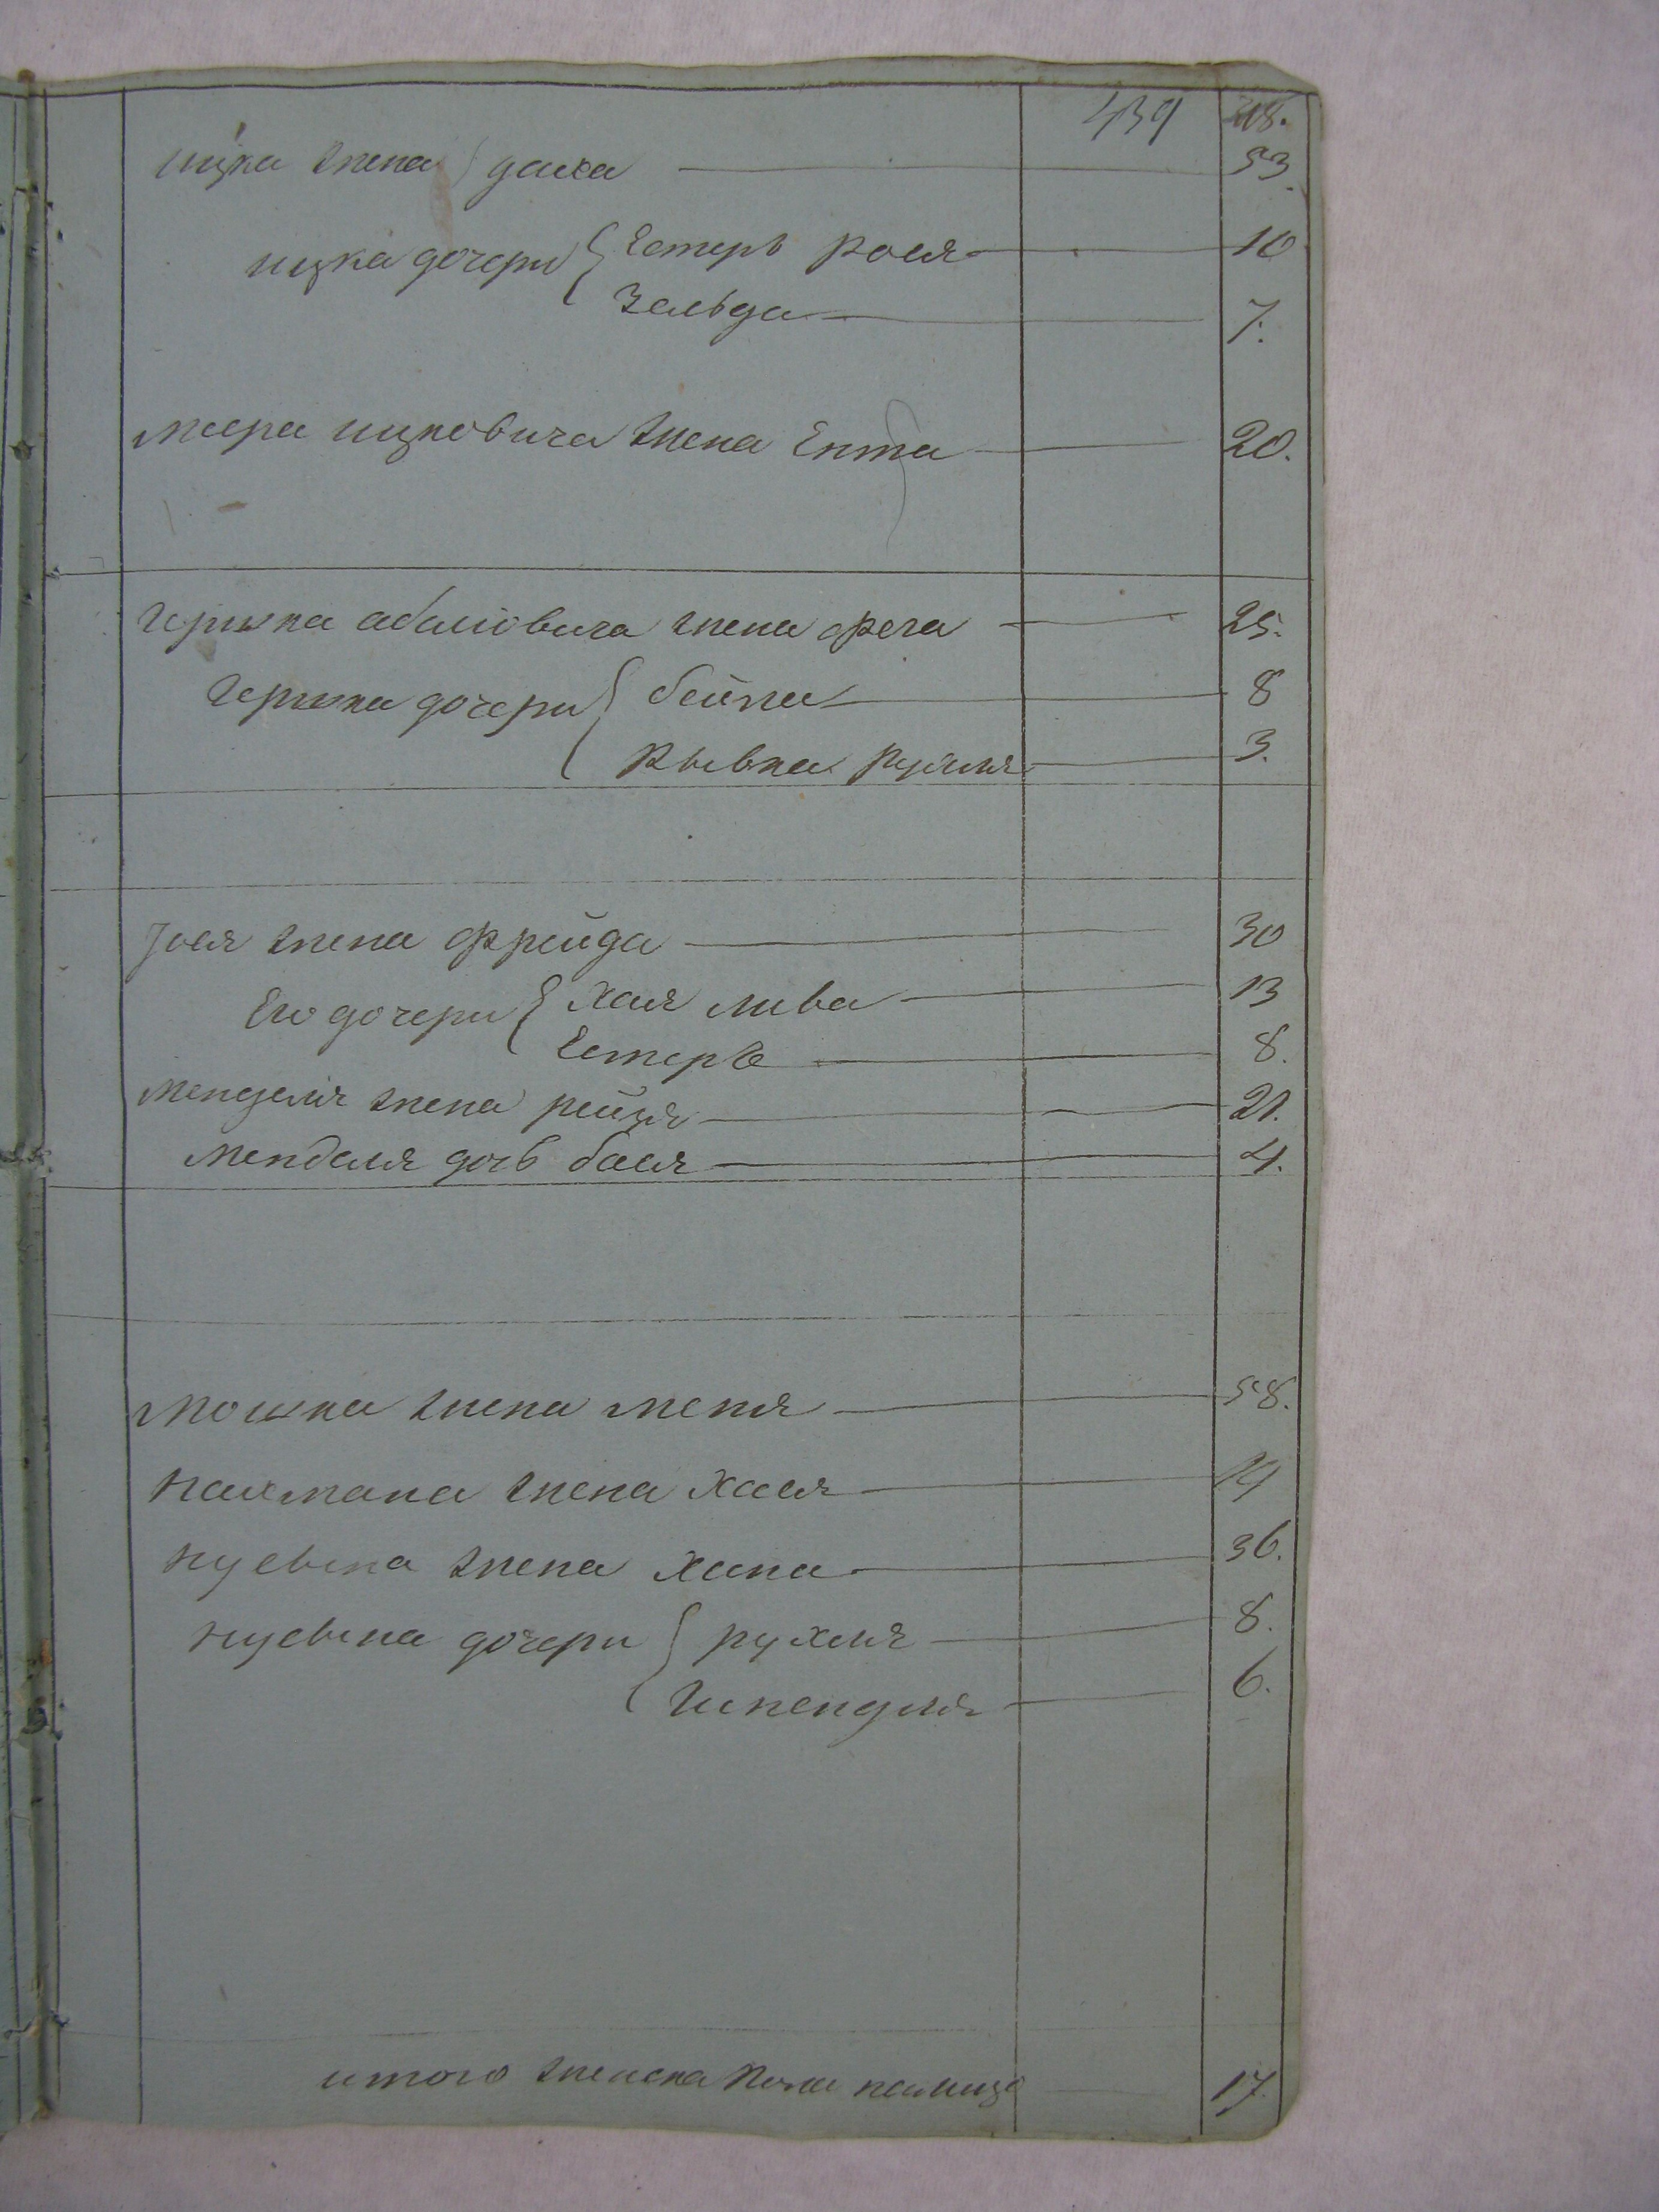 439
ицка жена
ицка дочери { Естерь рося 10
Зельда 7.
меера ицковича жена Ента 20.
гершка абамовича жена фега 25.
Гершка дочери { бейла 8
Рывка Рухля 3.
Йося жена Фрейда 30
Его дочери { Хая лива 13
Естеръ 8.
менделя жена рейзя 21.
Менделя дочь бася 4.
Мошка жена меня 58.
Нахмана жена Хася 19
жена Хана 36.
дочери { рухля 8.
6.
итого женска пола налицо 17.